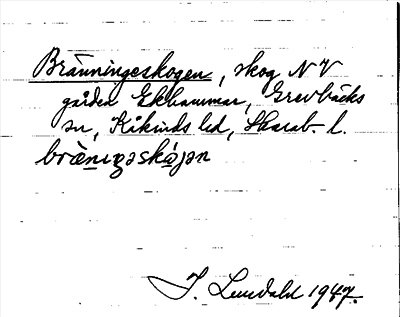 Bränningeskogen, skog NV
gården Ekhammar, Grevbäcks
sn, Kåkinds hd, Skarab. l.
bræ̀nıŋəskó̱jən
J. Lundahl 1947.